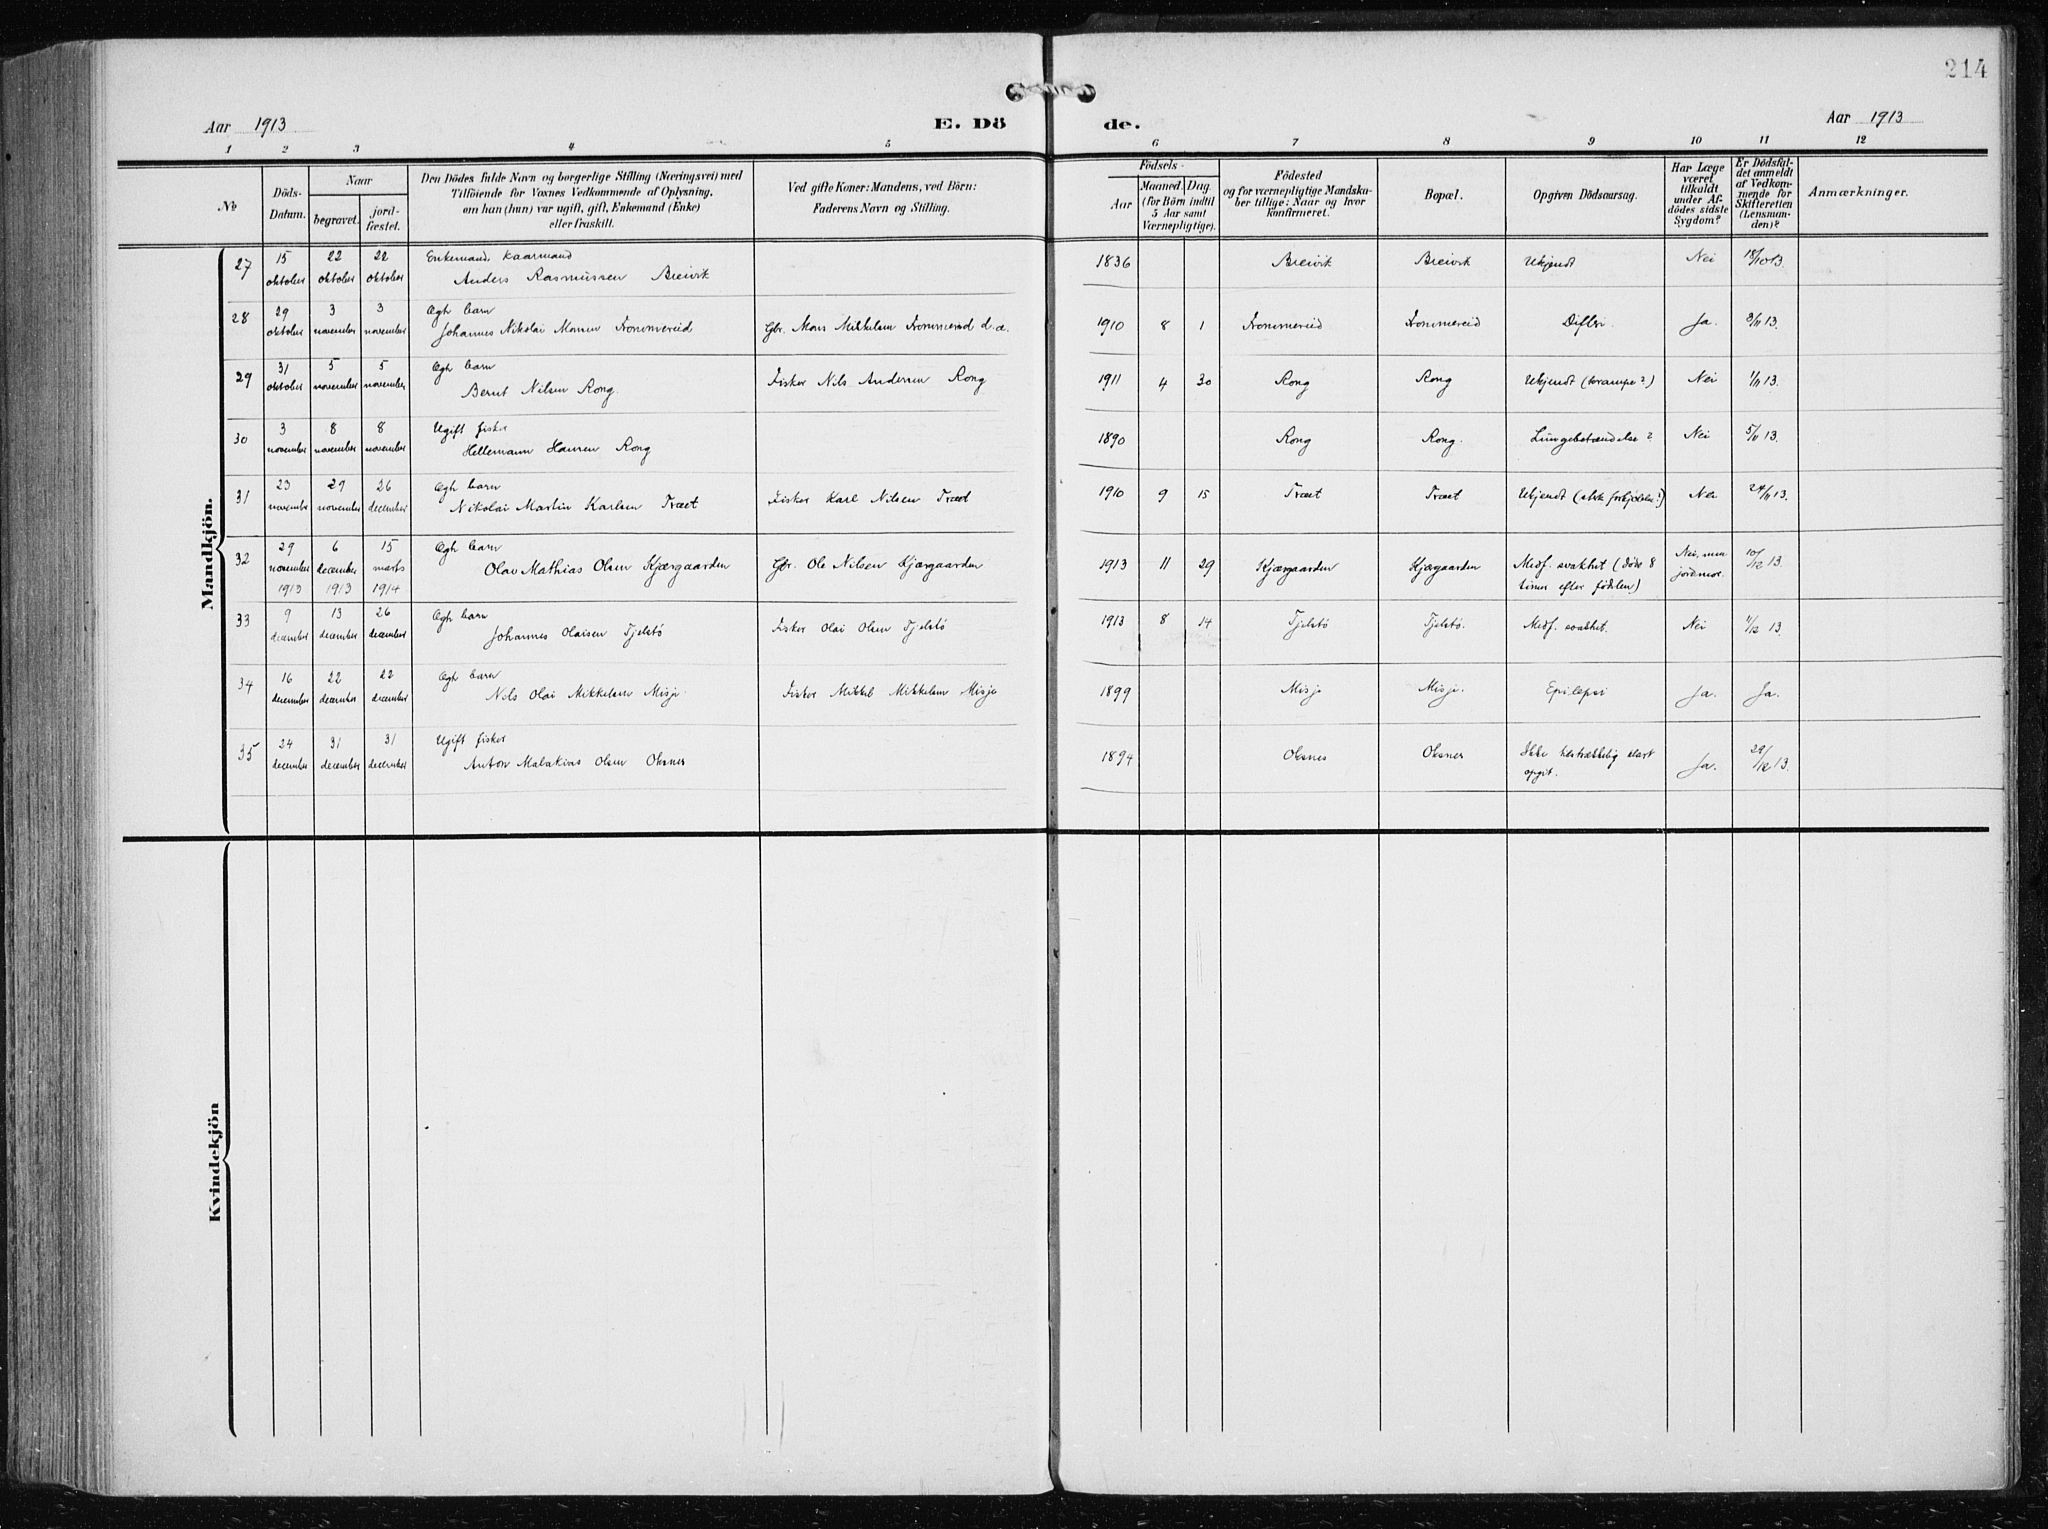 214
Aar 1913
E. Dö
de.
Aar 1913
1 2 3 4 5 6 7 8 9 10 11 12
No
Döds-Datum.
Naar
begravet.
jord-fæstet.
Den Dödes fulde Navn og borgerlige Stilling (Næringsvei) med
Tilföiende for Voxnes Vedkommende af Oplysning,
om han (hun) var ugift, gift, Enkemand (Enke)
eller fraskilt.
Ved gifte Koner: Mandens, ved Börn:
Faderens Navn og Stilling.
Födsels-
Aar
Maaned. Dag.
(for Börn indtil
5 Aar samt
Værnepligtige).
Födested
og for værnepligtige Mandska-
ber tillige: Naar og hvor
konfirmeret.
Bopæl.
Opgiven Dödsaarsag.
Har Læge
været
tilkaldt
under Af-
dödes sidste
Sygdom?
Er Dödsfal-
det anmeldt
af Vedkom-
mende for
Skifteretten
(Lensman-
den)?
Anmærkninger.
Mandkjön.
27 15 oktober 22 oktober 22 oktober Enkemand, kaarmand
Anders Rasmussen Breivik 1836 Breivik Breivik Ukjendt Nei 18/10 13.
28 29 oktober 3 november 3 november Ægh barn
Johannes Nikolai Monsen Trommereid Gbr. Mons Mikkelsen Trommereid d.æ. 1910 8 1 Trommereid Trommereid Difteri Ja. 3/11 13.
29 31 oktober 5 november 5 november Ægh barn
Bernt Nilsen Rong. Fisker Nils Andersen Rong 1911 4 30 Rong Rong Ukjendt (krampe?) Nei 1/11 13.
30 3 november 8 november 8 november Ugift fisker
Hellemann Hansen Rong 1890 Rong Rong. Lungebetændelse? Nei 5/11 13.
31 23 november 29 november 26 december Ægh barn
Nikolai Martin Karlsen Træet Fisker Karl Nilsen Træet 1910 9 15 Træet Træet Ukjendt (sterk forkjølelse?) Nei 24/11 13.
32 29 november 1913 6 december 1913 15 marts 1914 Ægh barn
Olav Mathias Olsen Kjærgaarden Gbr. Ole Nilsen Kjærgaarden 1913 11 29 Kjærgaarden Kjærgaarden Medf. svakhet (døde 8
timer efter fødslen) Nei, men
jordmor. 10/12 13.
33 9 december 13 december 26 december Ægh barn
Johannes Olaisen Tjelstø Fisker Olai Olsen Tjelstø 1913 8 14 Tjelstø Tjelstø. Medf. svakhet. Nei 11/12 13.
34 16 december 22 december 22 december Ægh barn
Nils Olai Mikkelsen Misje. Fisker Mikkel Mikkelsen Misje 1899 Misje Misje. Epilepsi Ja. Ja.
35 24 december 31 december 31 december Ugift fisker
Anton Malakias Olsen Oksnes 1894 Oksnes Oksnes Ikke tilstrækkelig klart
opgit. Ja. 29/12 13.
Kvindekjön